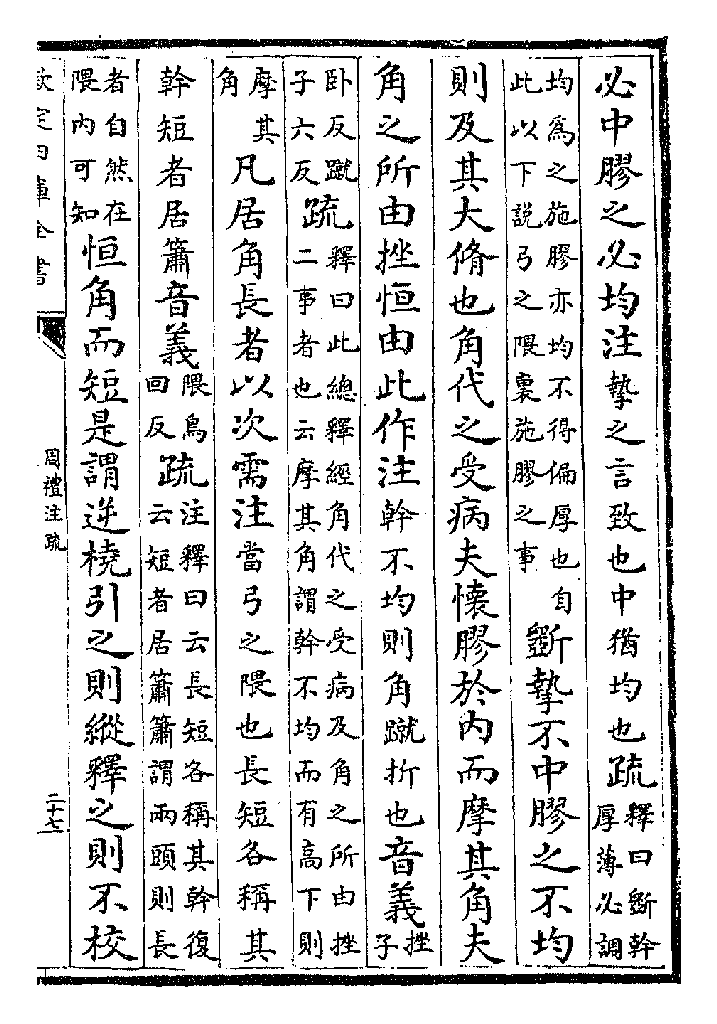 必中膠之必均注摯之言致也中猶均也疏釋曰斵幹厚薄必調
均為之施膠亦均不得偏厚也自此以下說弓之隈裏施膠之事斵摯不中膠之不均
則及其大脩也角代之受病夫懷膠於內而摩其角夫
角之所由挫恒由此作注幹不均則角蹴折也音義挫子
卧反蹴子六反疏釋曰此總釋經角代之受病及角之所由挫二事者也云摩其角謂幹不均而有高下則
摩其角凡居角長者以次需注當弓之隈也長短各稱其
幹短者居簫音義隈烏回反疏注釋曰云長短各稱其幹復云短者居簫簫謂兩頭則長
者自然在隈內可知恒角而短是謂逆橈引之則縱釋之則不校
欽定四庫全書
周禮注疏
二十七